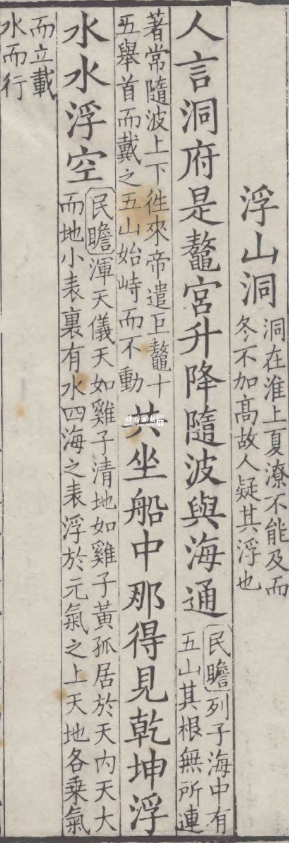 浮山洞
洞在淮上夏潦不能及而
冬不加髙故人疑其浮也
人言洞府是鼇宮升降隨波與海通
民瞻列子海中有
五山其根無所連
著常隨波上下徃來帝遣巨鼇十
五舉首而戴之五山始峙而不動
共坐船中那得見乾坤浮
水水浮空
民瞻渾天儀天如雞子清地如雞子黃孤居於天内天大
而地小表裏有水四海之表浮於元氣之上天地各乗氣
而立載
水而行